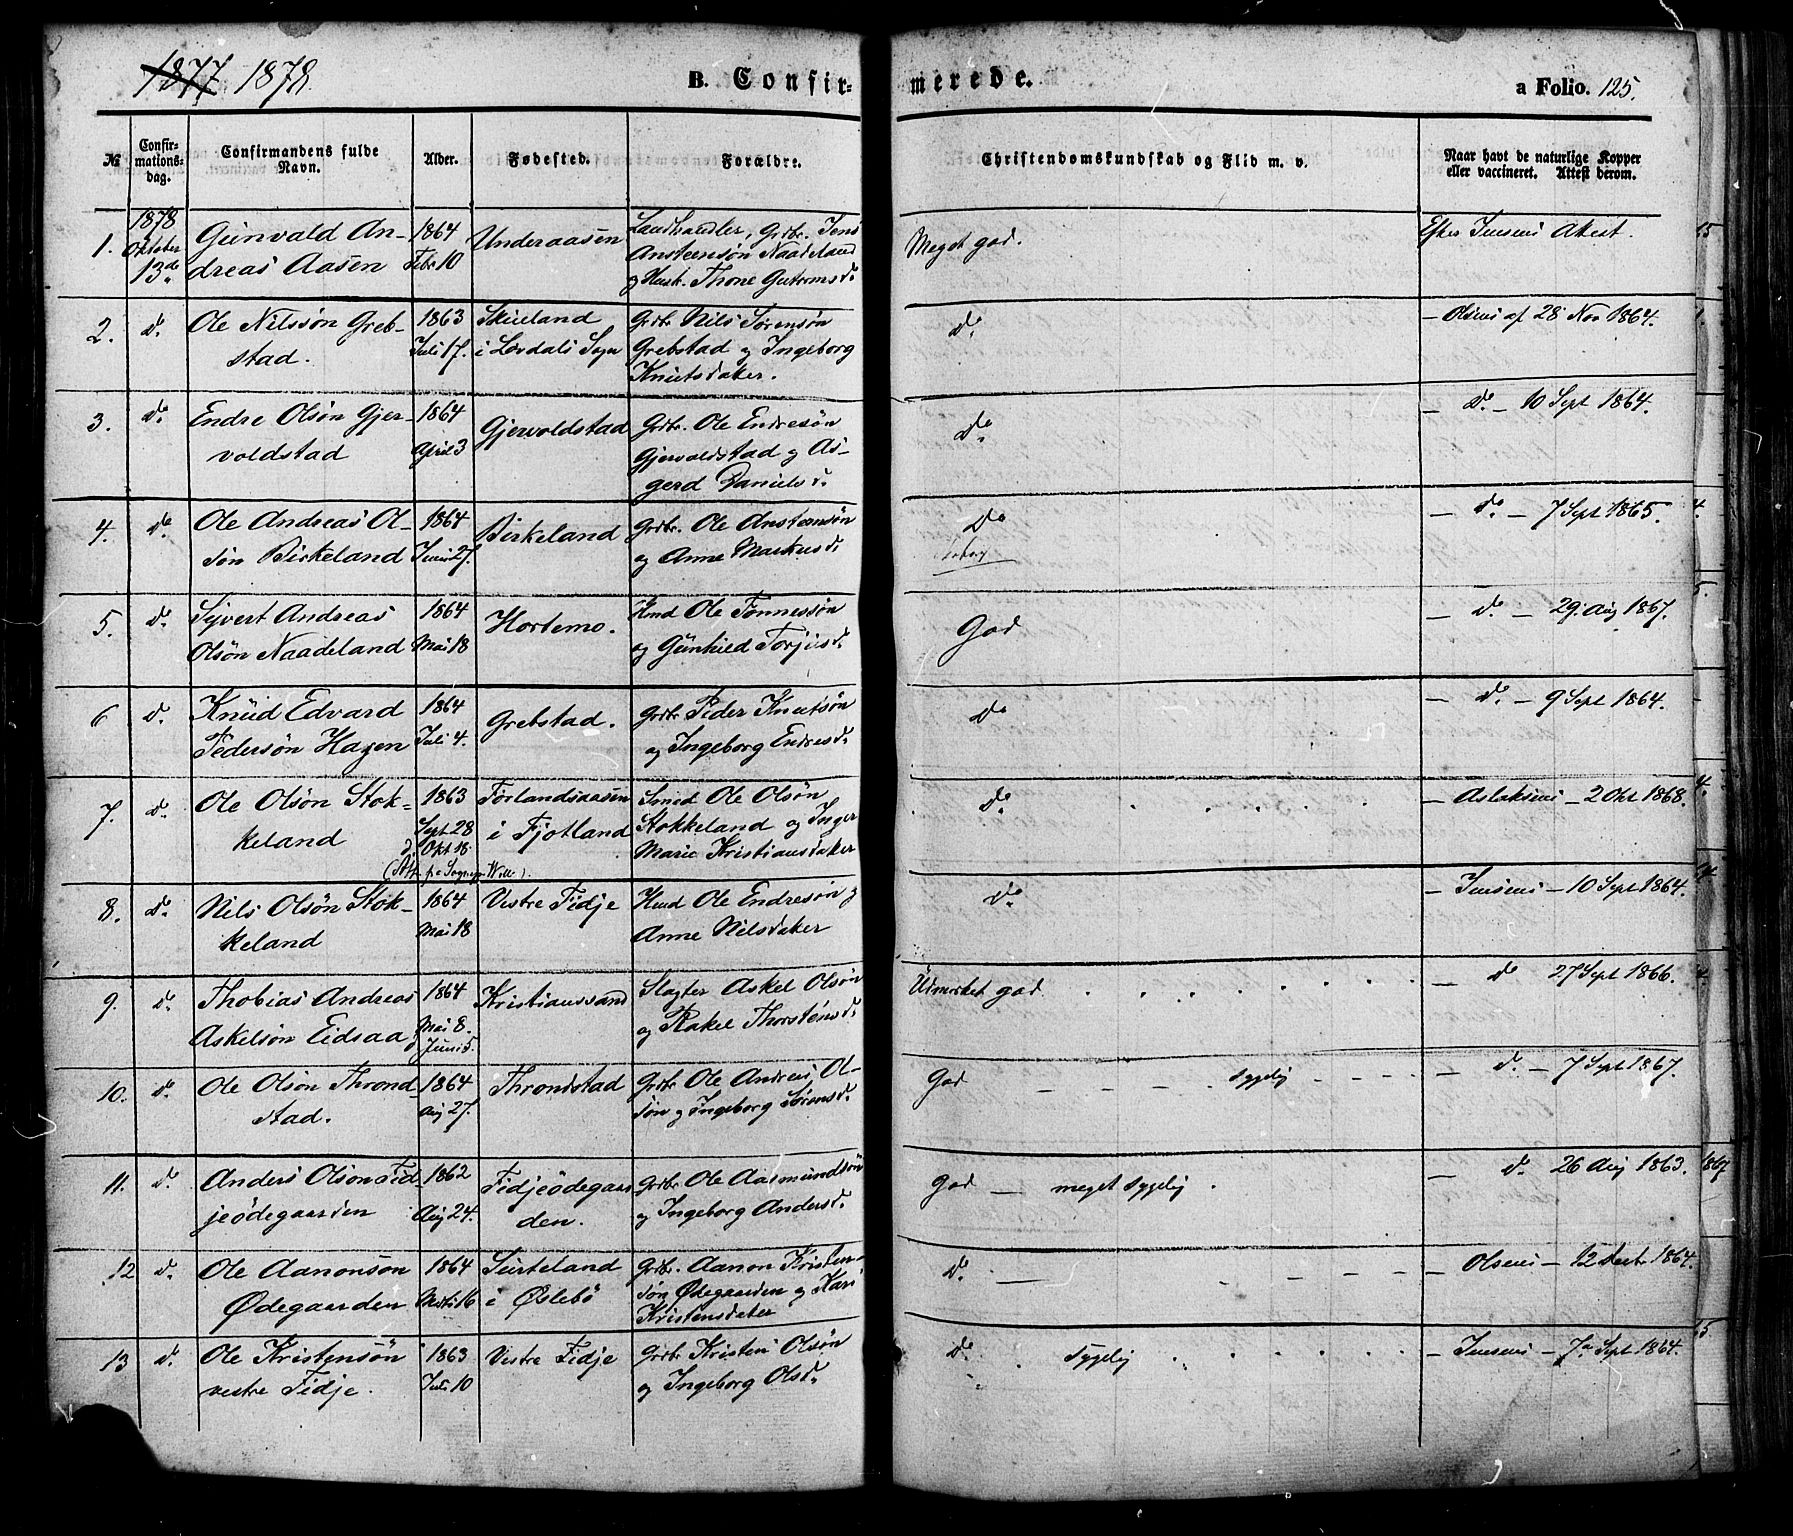 1877 1878.
B. Confirmerede.
a Folio. 125.
№
Confirmations-dag.
Confirmandens fulde Navn.
Alder.
Fødested.
Forældre.
Christendomskundskab og Flid m. v.
Naar havt de naturlige Kopper eller vaccineret. Attest derom.
1. 1878 Oktober 13de Gunvald Andreas Aasen 1864 Febr 10 Underaasen Landhandler, Grdbr. Jens Ansteensøn Naadeland og Hustr. Thone Gutormsd. Meget god. Efter Jensens Attest.
2. do Ole Nilssøn Grebstad. 1863 Juli 17. Skueland i Løvdals Sogn Grdbr Nils Sørensøn Grebstad og Ingeborg Knutsdater. do — Olsens af 28 Nov 1864.
3. do Endre Olsøn Gjervoldstad 1864 April 3 Gjervoldstad Grdbr. Ole Endresøn Gjervoldstad og Asgerd Danielsd. do — do — 10 Sept 1864.
4. do Ole Andreas Olsøn Birkeland 1864 Juni 27. Birkeland Grdbr. Ole Ansteensøn og Anne Markusd. do — do — 7 Sept 1865.
5. do Sivert Andreas Olsøn Naadeland 1864 Mai 18 Hortemo. Hmd Ole Tønnessøn og Gunhild Torjusd. God — do — 29. Aug 1867.
6 do Knud Edvard Pedersøn Hagen 1864 Juli 4. Grebstad. Grdbr Peder Knutsøn og Ingeborg Endresd. do — do — 9 Sept 1864.
7. do Ole Olsøn Stokkeland 1863 Sept 28 d. Okt 18. Førlandsaasen i Fjotland Smed Ole Olsøn Stokkeland og Inger Marie Kristiansdater do — Aslaksens — 2 Okt 1868.
8. do Nils Olsøn Stokkeland 1864 Mai 18 Vestre Fidje Hmd Ole Endresøn og Anne Nilsdater do — Jensens — 10 Sept 1864.
9. do Thobias Andreas Askelsøn Eidsaa 1864 Mai 8. d. Juni 5. Kristianssand Slagter Askel Olsøn og Rakel Thorstensd. Udmærket god. — do 27 Sept 1866.
10. do Ole Olsøn Throndstad. 1864 Aug 27. Throndstad Grdbr Ole Andreas Olsøn og Ingeborg Sørensd. God — sygelig — do — 7 Sept 1867.
11. do Anders Olsøn Fidjeødegaarden 1862 Aug 24. Fidjeødegaarden. Grdbr. Ole Aasmundsøn og Ingeborg Andersd. God — meget sygelig. — do 26 Aug 1863.
12 do Ole Aanonsøn Ødegaarden 1864 Marts 16 Surteland i Øslebø Grdbr. Aanon Kristensøn Ødegaarden og Kari Kristensdater do — — Olsens — 12 Decbr 1864.
13 do Ole Kristensøn vestre Fidje. 1863 Juli 10 Vestre Fidje Grdbr Kristen Olsøn og Ingeborg Olsd. do sygelig — Jensens — 7de Sept 1864.